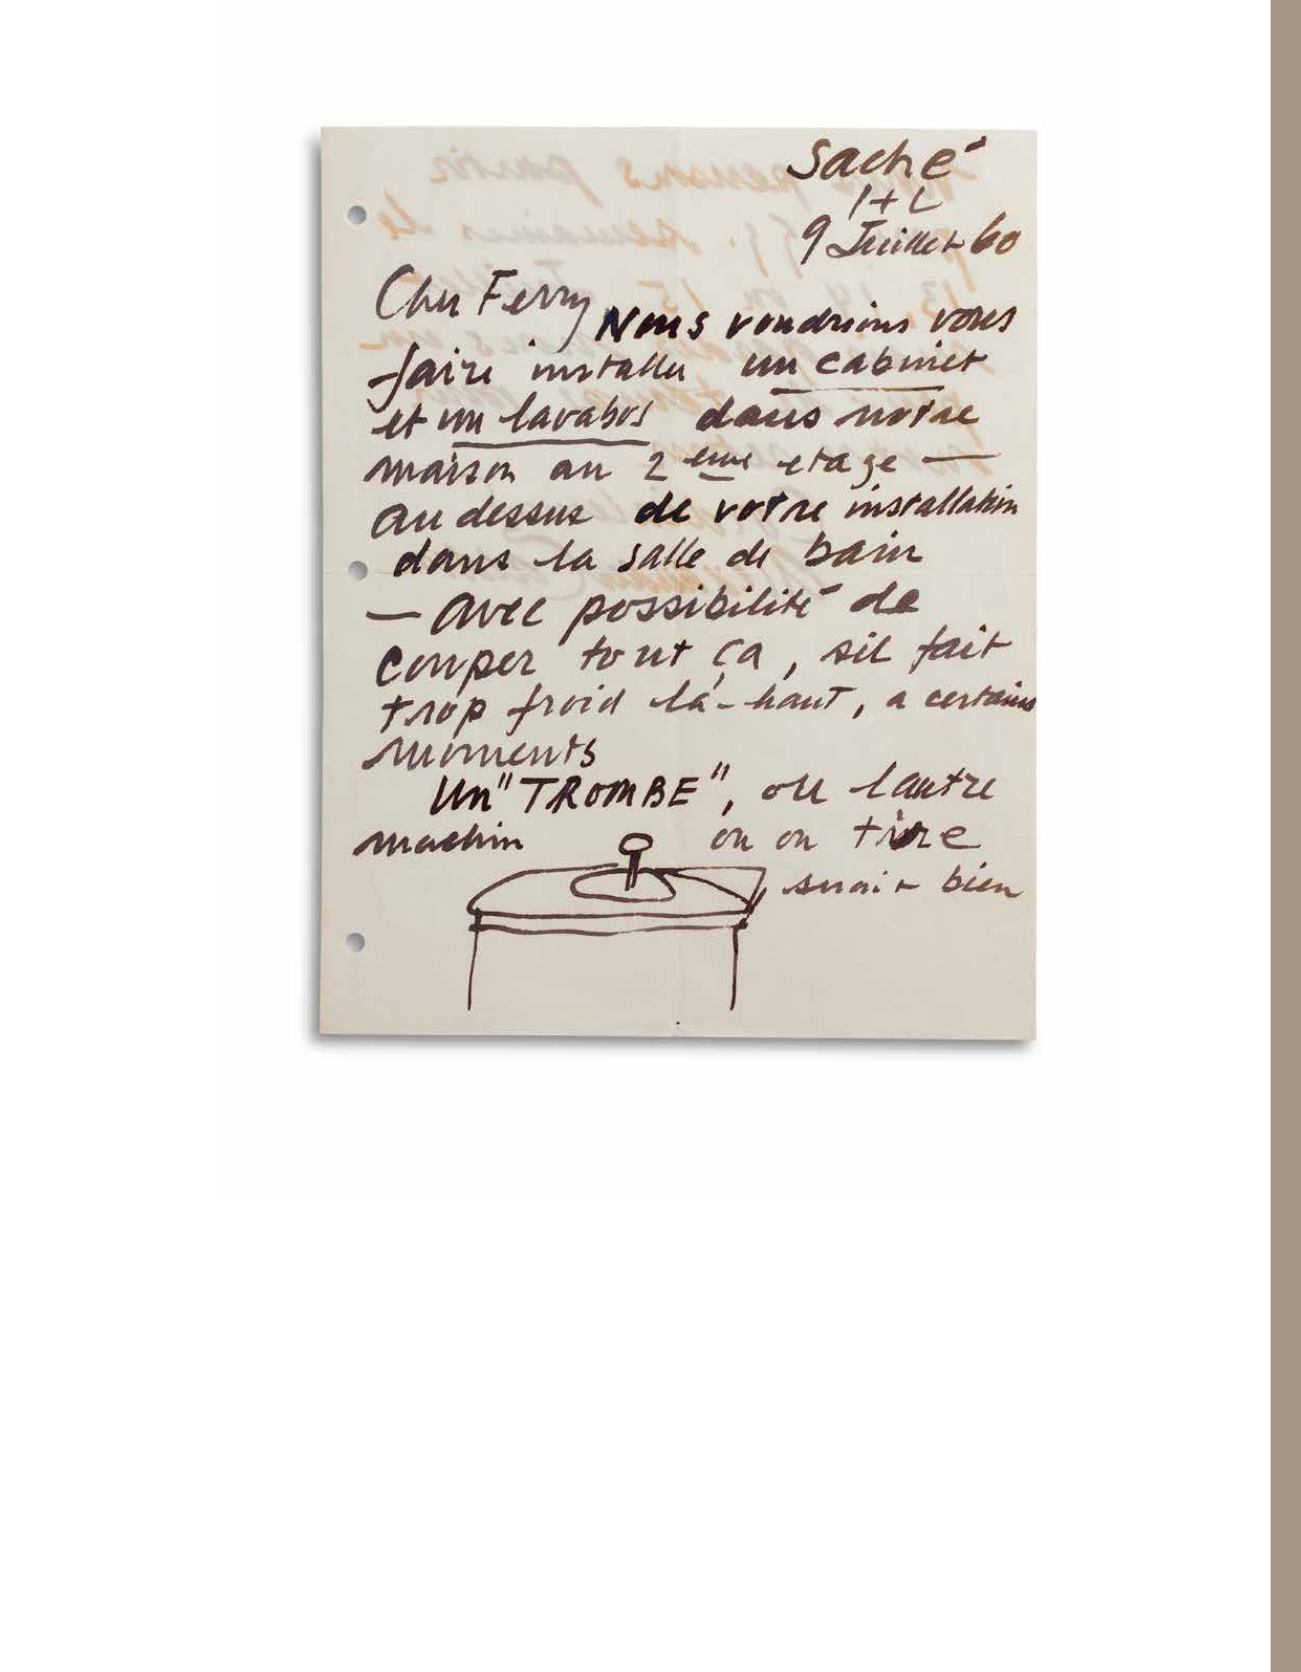 Saché
I+L
9 Juillet 60
Cher Ferry
Nous voudrions vous
faire installer un cabinet
et un lavabos dans notre
maison au 2 eme etage —
au dessus de votre installation
dans la salle de bain
— avec possibilité de
couper tout ça, sil fait
trop froid là-haut, a certains
moments
Un "TROMBE", ou lautre
machin ou on tire
, serait bien